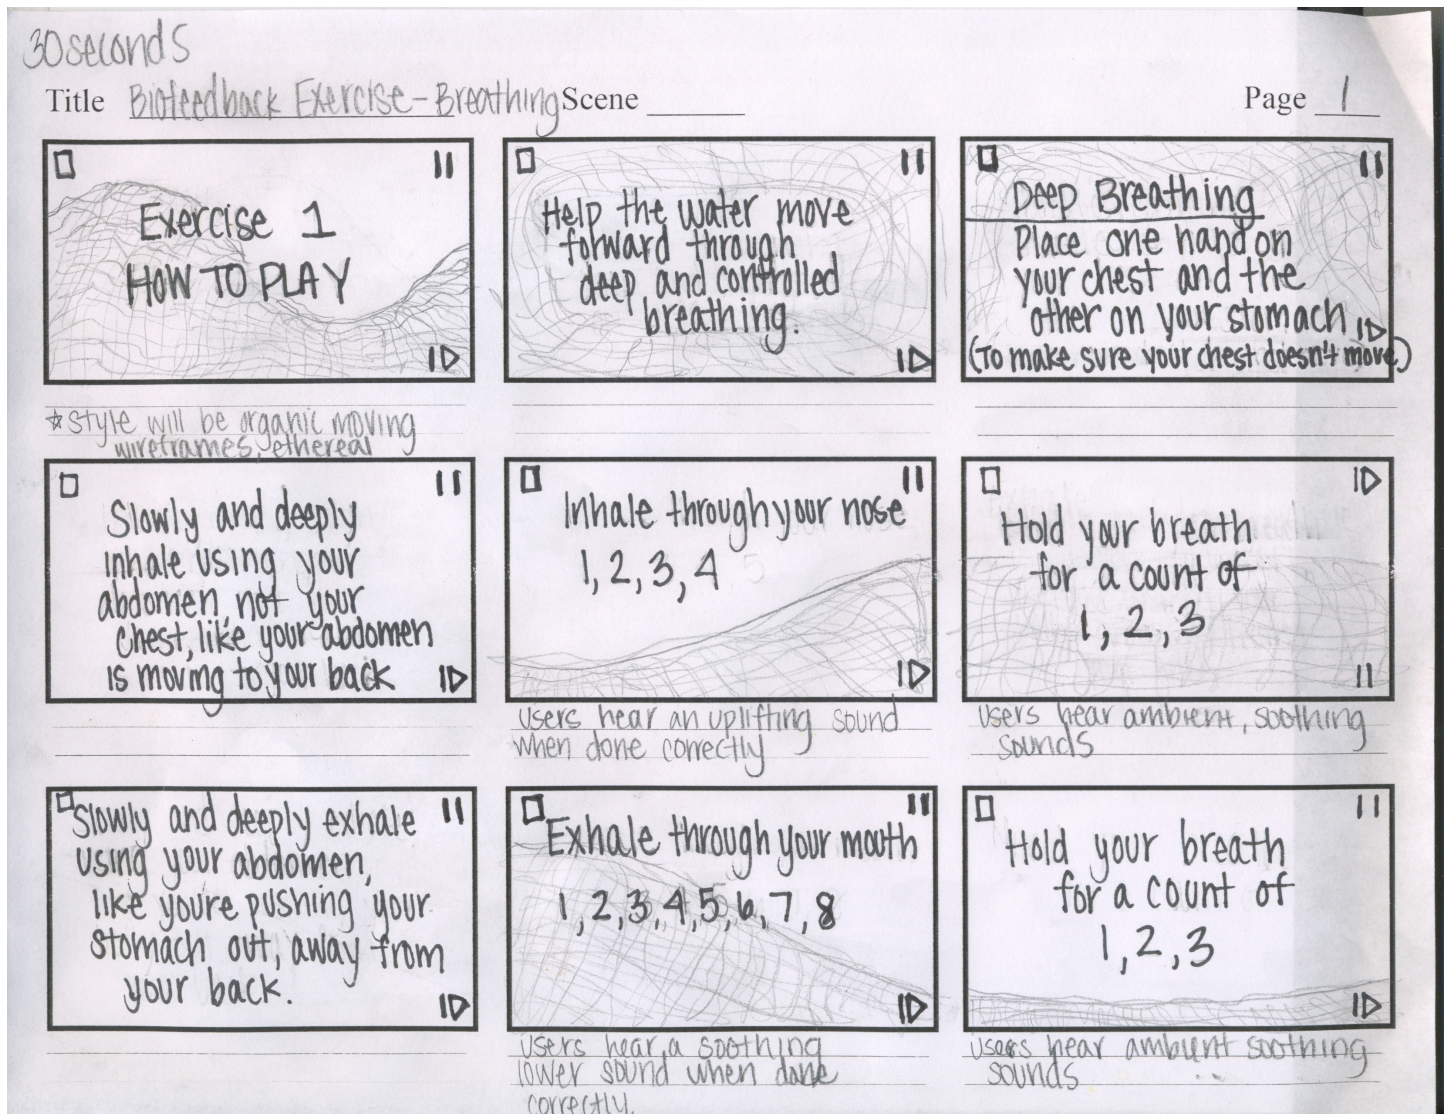 30 seconds
Title Biofeedback Exercise - Breathing Scene Page 1
Exercise 1
HOW TO PLAY
*Style will be organic moving
wireframes, ethereal
Help the water move
forward through
deep and controlled
breathing.
Deep Breathing
Place one hand on
your chest and the
other on your stomach
(To make sure your chest doesn't move)
Slowly and deeply
inhale using your
abdomen, not your
chest, like your abdomen
is moving to your back
Inhale through your nose
1, 2, 3, 4
users hear an uplifting sound
when done correctly
Hold your breath
for a count of
1, 2, 3
users hear ambient, soothing
sounds
Slowly and deeply exhale
using your abdomen,
like you're pushing your
stomach out, away from
your back.
Exhale through your mouth
1, 2, 3, 4, 5, 6, 7, 8
users hear a soothing
lower sound when done
correctly.
Hold your breath
for a count of
1, 2, 3
users hear ambient soothing
sounds